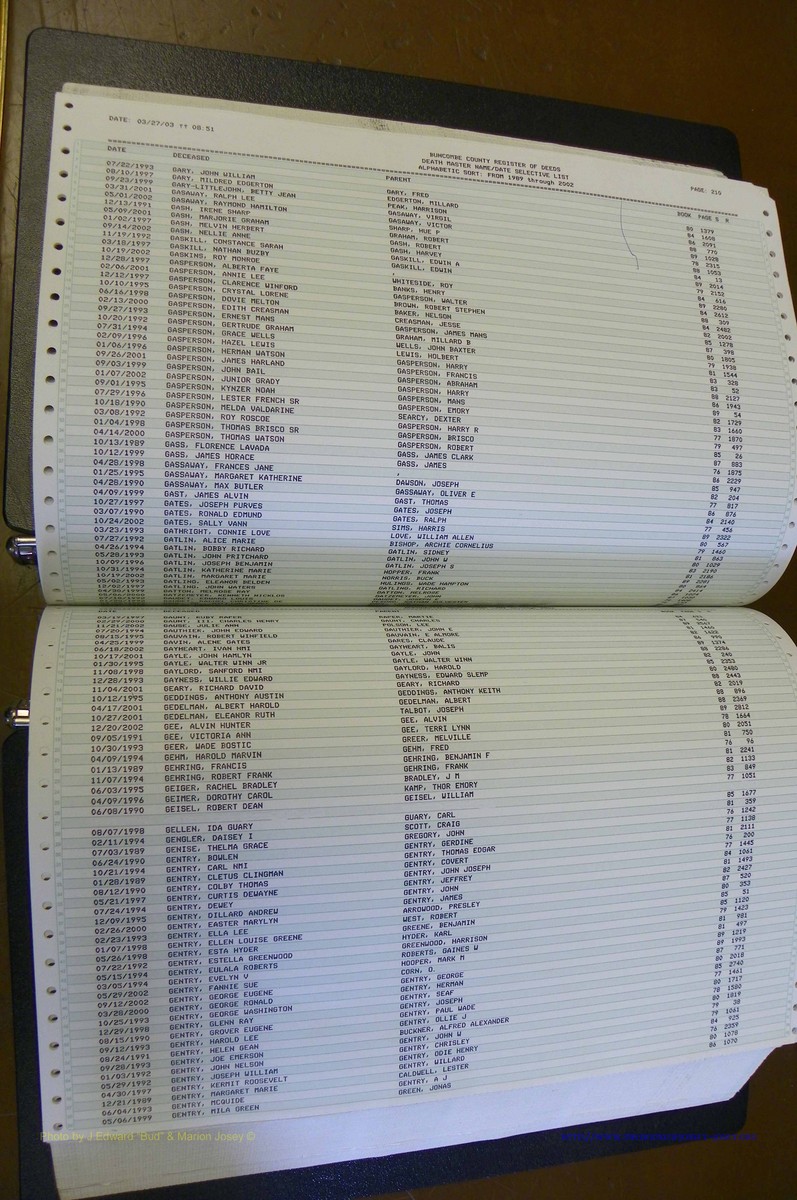 DATE: 03/27/03 @ 08.51
BUNCOMBE COUNTY REGISTER OF DEEDS
DEATH MASTER NAME/DATE SELECTIVE LIST
ALPHABETIC SORT: FROM 1989 through 2002
PAGE: 210
DATE DECEASED PARENT BOOK PAGE S R
07/22/1993 GARY, JOHN WILLIAM GARY, FRED 80 1379
08/10/1997 GARY, MILDRED EDGERTON EDGERTON, MILLARD 84 1608
09/23/1999 GARY-LITTLEJOHN, BETTY JEAN PEAK, HARRISON 86 2091
03/31/2001 GASAWAY, RALPH LEE GASAWAY, VIRGIL 88 770
05/01/2002 GASAWAY, RAYMOND HAMILTON GASAWAY, VICTOR 89 1028
12/13/1991 GASH, IRENE SHARP SHARP, HUE P 78 2315
05/09/2001 GASH, MARJORIE GRAHAM GRAHAM, ROBERT 88 1053
01/02/1997 GASH, MELVIN HERBERT GASH, ROBERT 84 13
09/14/2002 GASH, NELLIE ANNE GASH, HARVEY 89 2014
11/19/1992 GASKILL, CONSTANCE SARAH GASKILL, EDWIN A 79 2152
03/18/1997 GASKILL, NATHAN BUZBY GASKILL, EDWIN 84 616
10/19/2002 GASKINS, ROY MONROE , 89 2280
12/28/1997 GASPERSON, ALBERTA FAYE WHITESIDE, ROY 84 2612
02/06/2001 GASPERSON, ANNIE LEE BANKS, HENRY 88 309
12/12/1997 GASPERSON, CLARENCE WINFORD GASPERSON, WALTER 84 2482
10/10/1995 GASPERSON, CRYSTAL LORENE BROWN, ROBERT STEPHEN 82 2002
06/16/1998 GASPERSON, DOVIE MELTON BAKER, NELSON 85 1278
02/13/2000 GASPERSON, EDITH CREASMAN CREASMAN, JESSE 87 398
09/27/1993 GASPERSON, ERNEST MANS GASPERSON, JAMES MANS 80 1805
10/20/1992 GASPERSON, GERTRUDE GRAHAM GRAHAM, MILLARD B 79 1938
07/31/1994 GASPERSON, GRACE WELLS WELLS, JOHN BAXTER 81 1544
02/09/1996 GASPERSON, HAZEL LEWIS LEWIS, HOLBERT 83 328
01/06/1996 GASPERSON, HERMAN WATSON GASPERSON, HARRY 83 52
09/26/2001 GASPERSON, JAMES HARLAND GASPERSON, FRANCIS 88 2127
09/03/1999 GASPERSON, JOHN BAIL GASPERSON, ABRAHAM 86 1943
01/07/2002 GASPERSON, JUNIOR GRADY GASPERSON, HARRY 89 54
09/01/1995 GASPERSON, KYNZER NOAH GASPERSON, MANS 82 1729
07/29/1996 GASPERSON, LESTER FRENCH SR GASPERSON, EMORY 83 1660
10/18/1990 GASPERSON, MELDA VALDARINE SEARCY, DEXTER 77 1870
03/08/1992 GASPERSON, ROY ROSCOE GASPERSON, HARRY R 79 497
01/04/1998 GASPERSON, THOMAS BRISCO SR GASPERSON, BRISCO 85 26
04/14/2000 GASPERSON, THOMAS WATSON GASPERSON, ROBERT 87 883
10/13/1989 GASS, FLORENCE LAVADA GASS, JAMES CLARK 76 1875
10/12/1999 GASS, JAMES HORACE GASS, JAMES 86 2229
04/28/1998 GASSAWAY, FRANCES JANE , 85 947
01/25/1995 GASSAWAY, MARGARET KATHERINE DAWSON, JOSEPH 82 204
04/28/1990 GASSAWAY, MAX BUTLER GASSAWAY, OLIVER E 77 817
04/09/1999 GAST, JAMES ALVIN GAST, THOMAS 86 876
10/27/1997 GATES, JOSEPH PURVES GATES, JOSEPH 84 2140
03/07/1990 GATES, RONALD EDMUND GATES, RALPH 77 456
10/24/2002 GATES, SALLY VANN SIMS, HARRIS 89 2322
03/23/1993 GATHRIGHT, CONNIE LOVE LOVE, WILLIAM ALLEN 80 567
07/27/1992 GATLIN, ALICE MARIE BISHOP, ARCHIE CORNELIUS 79 1460
04/26/1994 GATLIN, BOBBY RICHARD GATLIN, SIDNEY 81 863
05/28/1993 GATLIN, JOHN PRITCHARD GATLIN, JOHN W 80 1029
10/09/1996 GATLIN, JOSEPH BENJAMIN GATLIN, JOSEPH S 83 2192
10/31/1994 GATLIN, KATHERINE MARIE HOPPER, FRANK 81 2186
10/17/2002 GATLIN, MARGARET MARIE NORRIS, BUCK
05/02/1993 GATLING, ELEANOR BELDEN HULINGS, WADE HAMPTON
12/02/1997 GATLING, JOHN WATERS GATLING, RICHARD
GATTON, MELROSE RAY GATTON, MELROSE
DATE DECEASED PARENT
03/19/1997 GAUNT, RUBY RAPER RAPER, MARTIE
02/29/2000 GAUNT, III, CHARLES HENRY GAUNT, CHARLES
11/21/2002 GAUSE, JULIE ANN POLSON, LEE
07/20/1994 GAUTHIER, JOHN EDWARD GAUTHIER, JOHN E
08/13/1995 GAUVAIN, ROBERT WINFIELD GAUVAIN, E ALMORE
04/25/1999 GAVIN, ALENE GATES GARES, CLAUDE
06/18/2002 GAYHEART, IVAN NMI GAYHEART, BALIS 89 1374
10/17/2001 GAYLE, JOHN HAMLYN GAYLE, JOHN 88 2286
01/30/1995 GAYLE, WALTER WINN JR GAYLE, WALTER WINN 82 240
11/08/1998 GAYLORD, SANFORD NMI GAYLORD, HAROLD 85 2353
12/28/1993 GAYNESS, WILLIE EDWARD GAYNESS, EDWARD SLEMP 80 2480
11/04/2001 GEARY, RICHARD DAVID GEARY, RICHARD 88 2443
10/12/1995 GEDDINGS, ANTHONY AUSTIN GEDDINGS, ANTHONY KEITH 82 2019
04/17/2001 GEDELMAN, ALBERT HAROLD GEDELMAN, ALBERT 88 896
10/27/2001 GEDELMAN, ELEANOR RUTH TALBOT, JOSEPH 88 2369
12/20/2002 GEE, ALVIN HUNTER GEE, ALVIN 89 2812
09/05/1991 GEE, VICTORIA ANN GEE, TERRI LYNN 78 1664
10/30/1993 GEER, WADE BOSTIC GREER, MELVILLE 80 2051
04/09/1994 GEHM, HAROLD MARVIN GEHM, FRED 81 750
01/13/1989 GEHRING, FRANCIS GEHRING, BENJAMIN F 76 96
11/07/1994 GEHRING, ROBERT FRANK GEHRING, FRANK 81 2241
06/03/1995 GEIGER, RACHEL BRADLEY BRADLEY, J M 82 1133
04/09/1996 GEIMER, DOROTHY CAROL KAMP, THOR EMORY 83 849
06/08/1990 GEISEL, ROBERT DEAN GEISEL, WILLIAM 77 1051
08/07/1998 GELLEN, IDA GUARY GUARY, CARL 85 1677
02/11/1994 GENGLER, DAISEY I SCOTT, CRAIG 81 359
07/03/1989 GENISE, THELMA GRACE GREGORY, JOHN 76 1242
06/24/1990 GENTRY, BOWLEN GENTRY, GERDINE 77 1138
10/21/1994 GENTRY, CARL NMI GENTRY, THOMAS EDGAR 81 2111
01/28/1989 GENTRY, CLETUS CLINGMAN GENTRY, COVERT 76 200
08/12/1990 GENTRY, COLBY THOMAS GENTRY, JOHN JOSEPH 77 1445
05/21/1997 GENTRY, CURTIS DEWAYNE GENTRY, JEFFREY 84 1061
07/24/1994 GENTRY, DEWEY GENTRY, JOHN 81 1493
12/09/1995 GENTRY, DILLARD ANDREW GENTRY, JAMES 82 2427
02/26/2000 GENTRY, EASTER MARYLYN ARROWOOD, PRESLEY 87 520
02/23/1993 GENTRY, ELLA LEE WEST, ROBERT 80 353
01/07/1998 GENTRY, ELLEN LOUISE GREENE GREENE, BENJAMIN 85 51
05/26/1998 GENTRY, ESTA HYDER HYDER, KARL 85 1120
07/22/1992 GENTRY, ESTELLA GREENWOOD GREENWOOD, HARRISON 79 1423
05/15/1994 GENTRY, EULALA ROBERTS ROBERTS, GAINES W 81 981
03/05/1994 GENTRY, EVELYN V HOOPER, MARK M 81 497
05/29/2002 GENTRY, FANNIE SUE CORN, O. 89 1219
09/12/2002 GENTRY, GEORGE EUGENE GENTRY, GEORGE 89 1993
03/28/2000 GENTRY, GEORGE RONALD GENTRY, HERMAN 87 771
10/25/1993 GENTRY, GEORGE WASHINGTON GENTRY, SEAF 80 2018
12/29/1998 GENTRY, GLENN RAY GENTRY, JOSEPH 85 2740
08/15/1990 GENTRY, GROVER EUGENE GENTRY, PAUL WADE 77 1461
09/12/1993 GENTRY, HAROLD LEE GENTRY, OLLIE J 80 1717
08/24/1991 GENTRY, HELEN GEAN BUCKNER, ALFRED ALEXANDER 78 1580
09/28/1993 GENTRY, JOE EMERSON GENTRY, JOHN W 80 1819
01/03/1992 GENTRY, JOHN NELSON GENTRY, CHRISLEY 79 38
05/29/1992 GENTRY, JOSEPH WILLIAM GENTRY, ODIE HENRY 79 1061
04/30/1997 GENTRY, KERMIT ROOSEVELT GENTRY, WILLARD 84 925
12/21/1989 GENTRY, MARGARET MARIE CALDWELL, LESTER 76 2359
06/04/1993 GENTRY, MCGUIDE GENTRY, A J 80 1078
05/06/1999 GENTRY, MILA GREEN GREEN, JONAS 86 1070
Photo by J.Edward "Bud" & Marion Josey ©